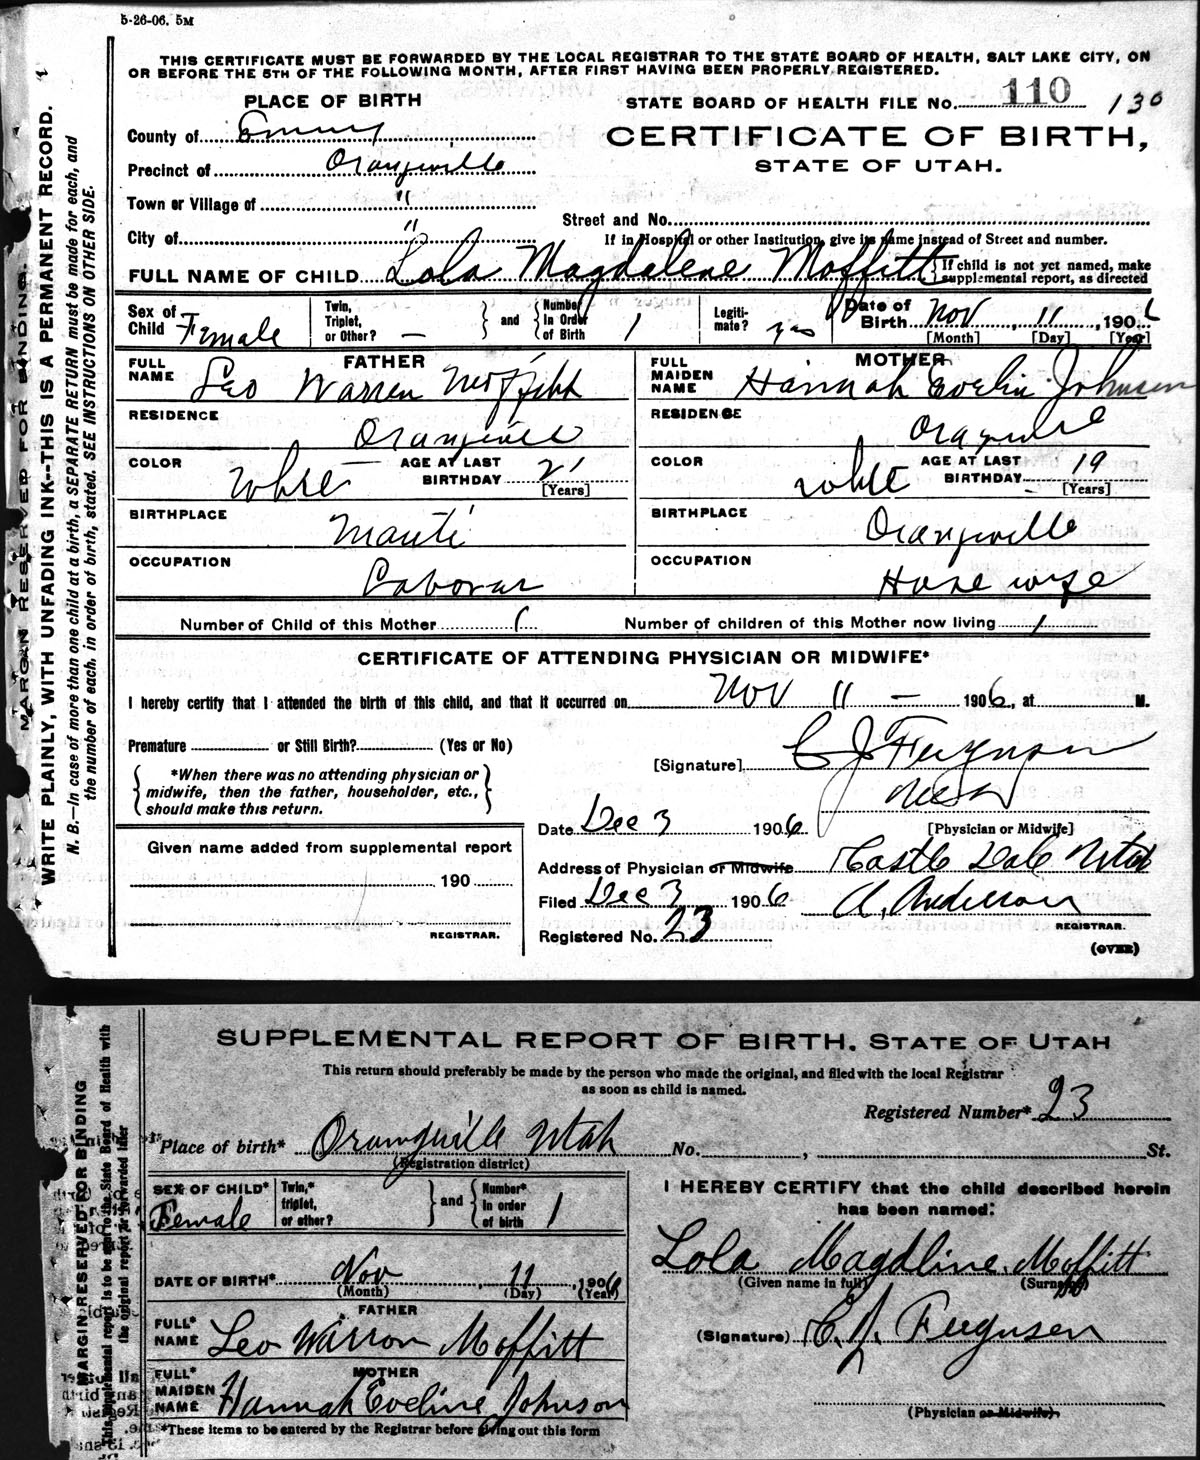 5-26-06. 5M
THIS CERTIFICATE MUST BE FORWARDED BY THE LOCAL REGISTRAR TO THE STATE BOARD OF HEALTH, SALT LAKE CITY, ON
OR BEFORE THE 5TH OF THE FOLLOWING MONTH, AFTER FIRST HAVING BEEN PROPERLY REGISTERED.
MARGAN RESERVED FOR BINDING.
WRITE PLAINLY, WITH UNFADING INK--THIS IS A PERMANENT RECORD.
N. B.—In case of more than one child at a birth, a SEPARATE RETURN must be made for each, and
the number of each. in order of birth, stated. SEE INSTRUCTIONS ON OTHER SIDE.
PLACE OF BIRTH
STATE BOARD OF HEALTH FILE No. 110 130
County of Emery
CERTIFICATE OF BIRTH,
STATE OF UTAH.
Precinct of Orangeville
Town or Village of "
Street and No.
City of "
If in Hospital or other Institution, give its name instead of Street and number.
FULL NAME OF CHILD Lola Magdalene Moffitt { If child is not yet named, make
supplemental report, as directed
Sex of Child Female
Twin, Triplet, or Other? — } and { Number In Order of Birth 1
Legiti-mate? yes
Date of Birth Nov 11, 1906
[Month] [Day] [Year]
FATHER
FULL NAME Leo Warren Moffitt
MOTHER
FULL MAIDEN NAME Hannah Evelin Johnson
RESIDENCE Orangeville
RESIDENCE Orangeville
COLOR White AGE AT LAST BIRTHDAY 21 [Years]
COLOR White AGE AT LAST BIRTHDAY 19 [Years]
BIRTHPLACE Manti
BIRTHPLACE Orangeville
OCCUPATION Laborar
OCCUPATION House wife
Number of Child of this Mother 1 Number of children of this Mother now living 1
CERTIFICATE OF ATTENDING PHYSICIAN OR MIDWIFE*
I hereby certify that I attended the birth of this child, and that it occurred on Nov 11 — 1906, at M.
Premature or Still Birth? (Yes or No)
{ *When there was no attending physician or
midwife, then the father, householder, etc.,
should make this return. }
[Signature] C J Ferguson
[Physician or Midwife]
Date Dec 3 1906
Given name added from supplemental report
190
REGISTRAR.
Address of Physician or Midwife Castle Dale Utah
Filed Dec 3 1906 A. Anderson
REGISTRAR.
Registered No. 23
(OVER)
SUPPLEMENTAL REPORT OF BIRTH, STATE OF UTAH
This return should preferably be made by the person who made the original, and filed with the local Registrar
as soon as child is named.
MARGIN RESERVED FOR BINDING
This supplemental report is to be sent to the State Board of Health with
the original report or forwarded later
Registered Number* 23
Place of birth* Orangeville Utah No. , St.
(Registration district)
SEX OF CHILD* Female
Twin,* triplet, or other? } and { Number* In order of birth 1
I HEREBY CERTIFY that the child described herein
has been named:
DATE OF BIRTH* Nov, 11, 1906
(Month) (Day) (Year)
Lola Magdline Moffitt
(Given name in full) (Surname)
FATHER
FULL* NAME Leo Warron Moffitt
(Signature) C. J. Fergusen
MOTHER
FULL* MAIDEN NAME Hannah Eveline Johnson
(Physician or Midwife)
*These items to be entered by the Registrar before giving out this form